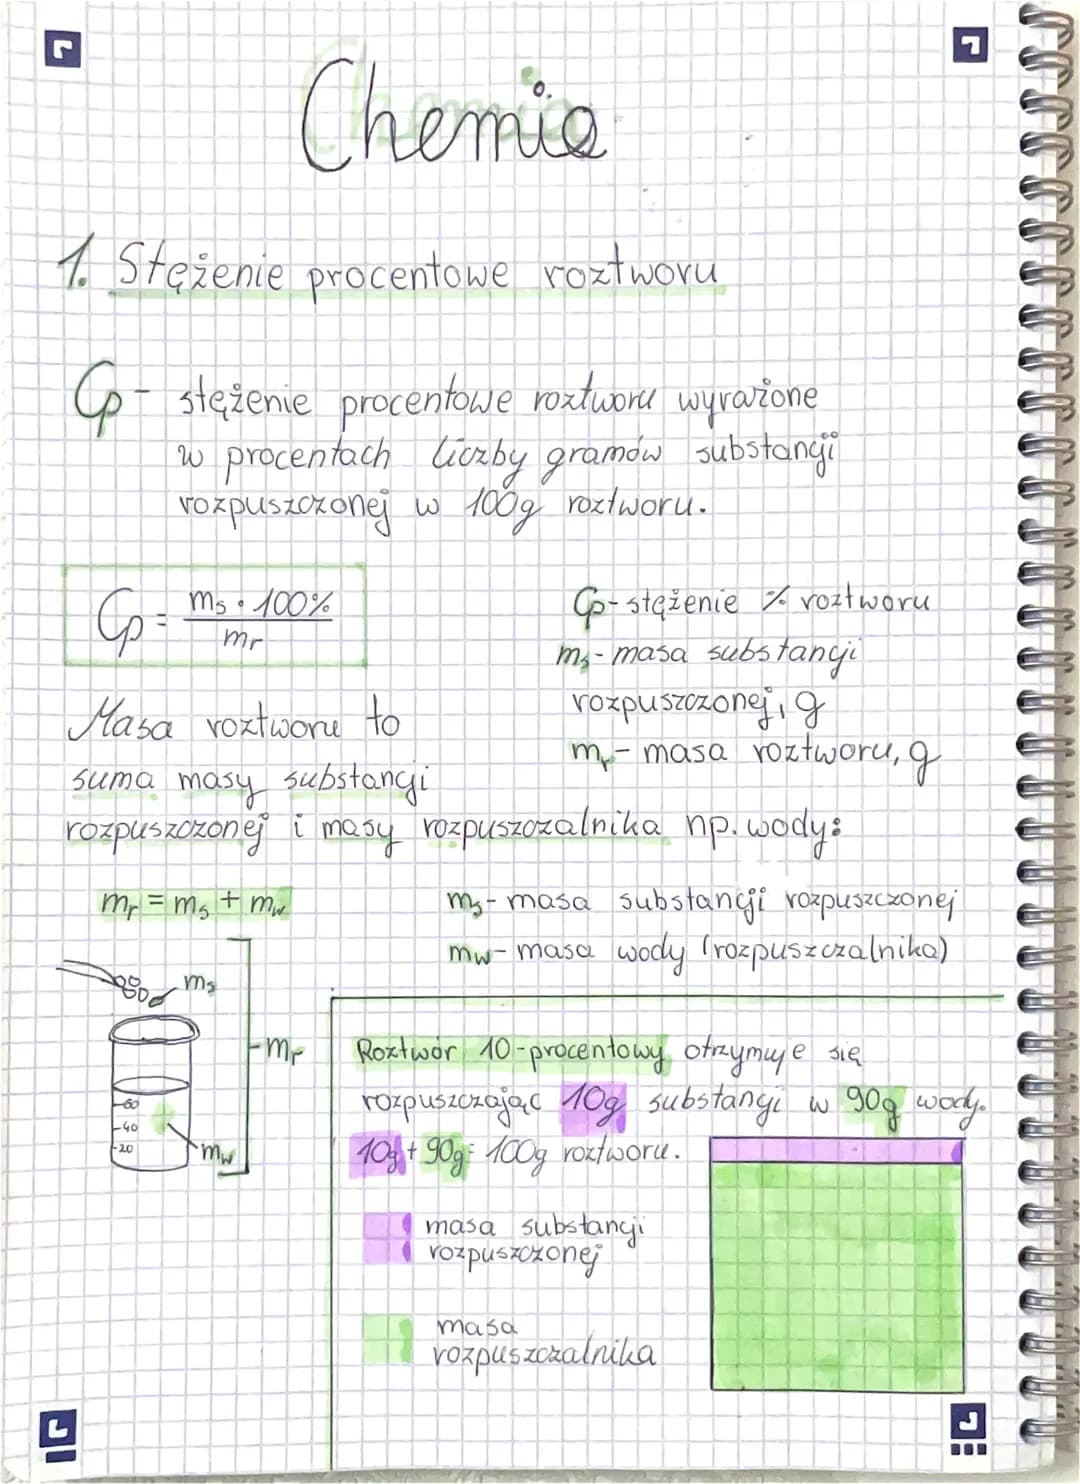 Chemia
1. Stężenie procentowe roztworu
Cp - stężenie procentowe roztworu wyrażone
w procentach liczby gramów substancji
rozpuszczonej w 100g roztworu.
Cp = ms · 100%
mr
Cp - stężenie % roztworu
ms - masa substancji
rozpuszczonej, g
mr - masa roztworu, g
Masa roztworu to
suma masy substancji
rozpuszczonej i masy rozpuszczalnika np. wody:
mr = ms + mw
ms - masa substancji rozpuszczonej
mw - masa wody (rozpuszczalnika)
ms
mr
60
40
20
mw
Roztwór 10-procentowy otrzymuje się
rozpuszczając 10g substancji w 90g wody.
10g + 90g = 100g roztworu.
masa substancji
rozpuszczonej
masa
rozpuszczalnika